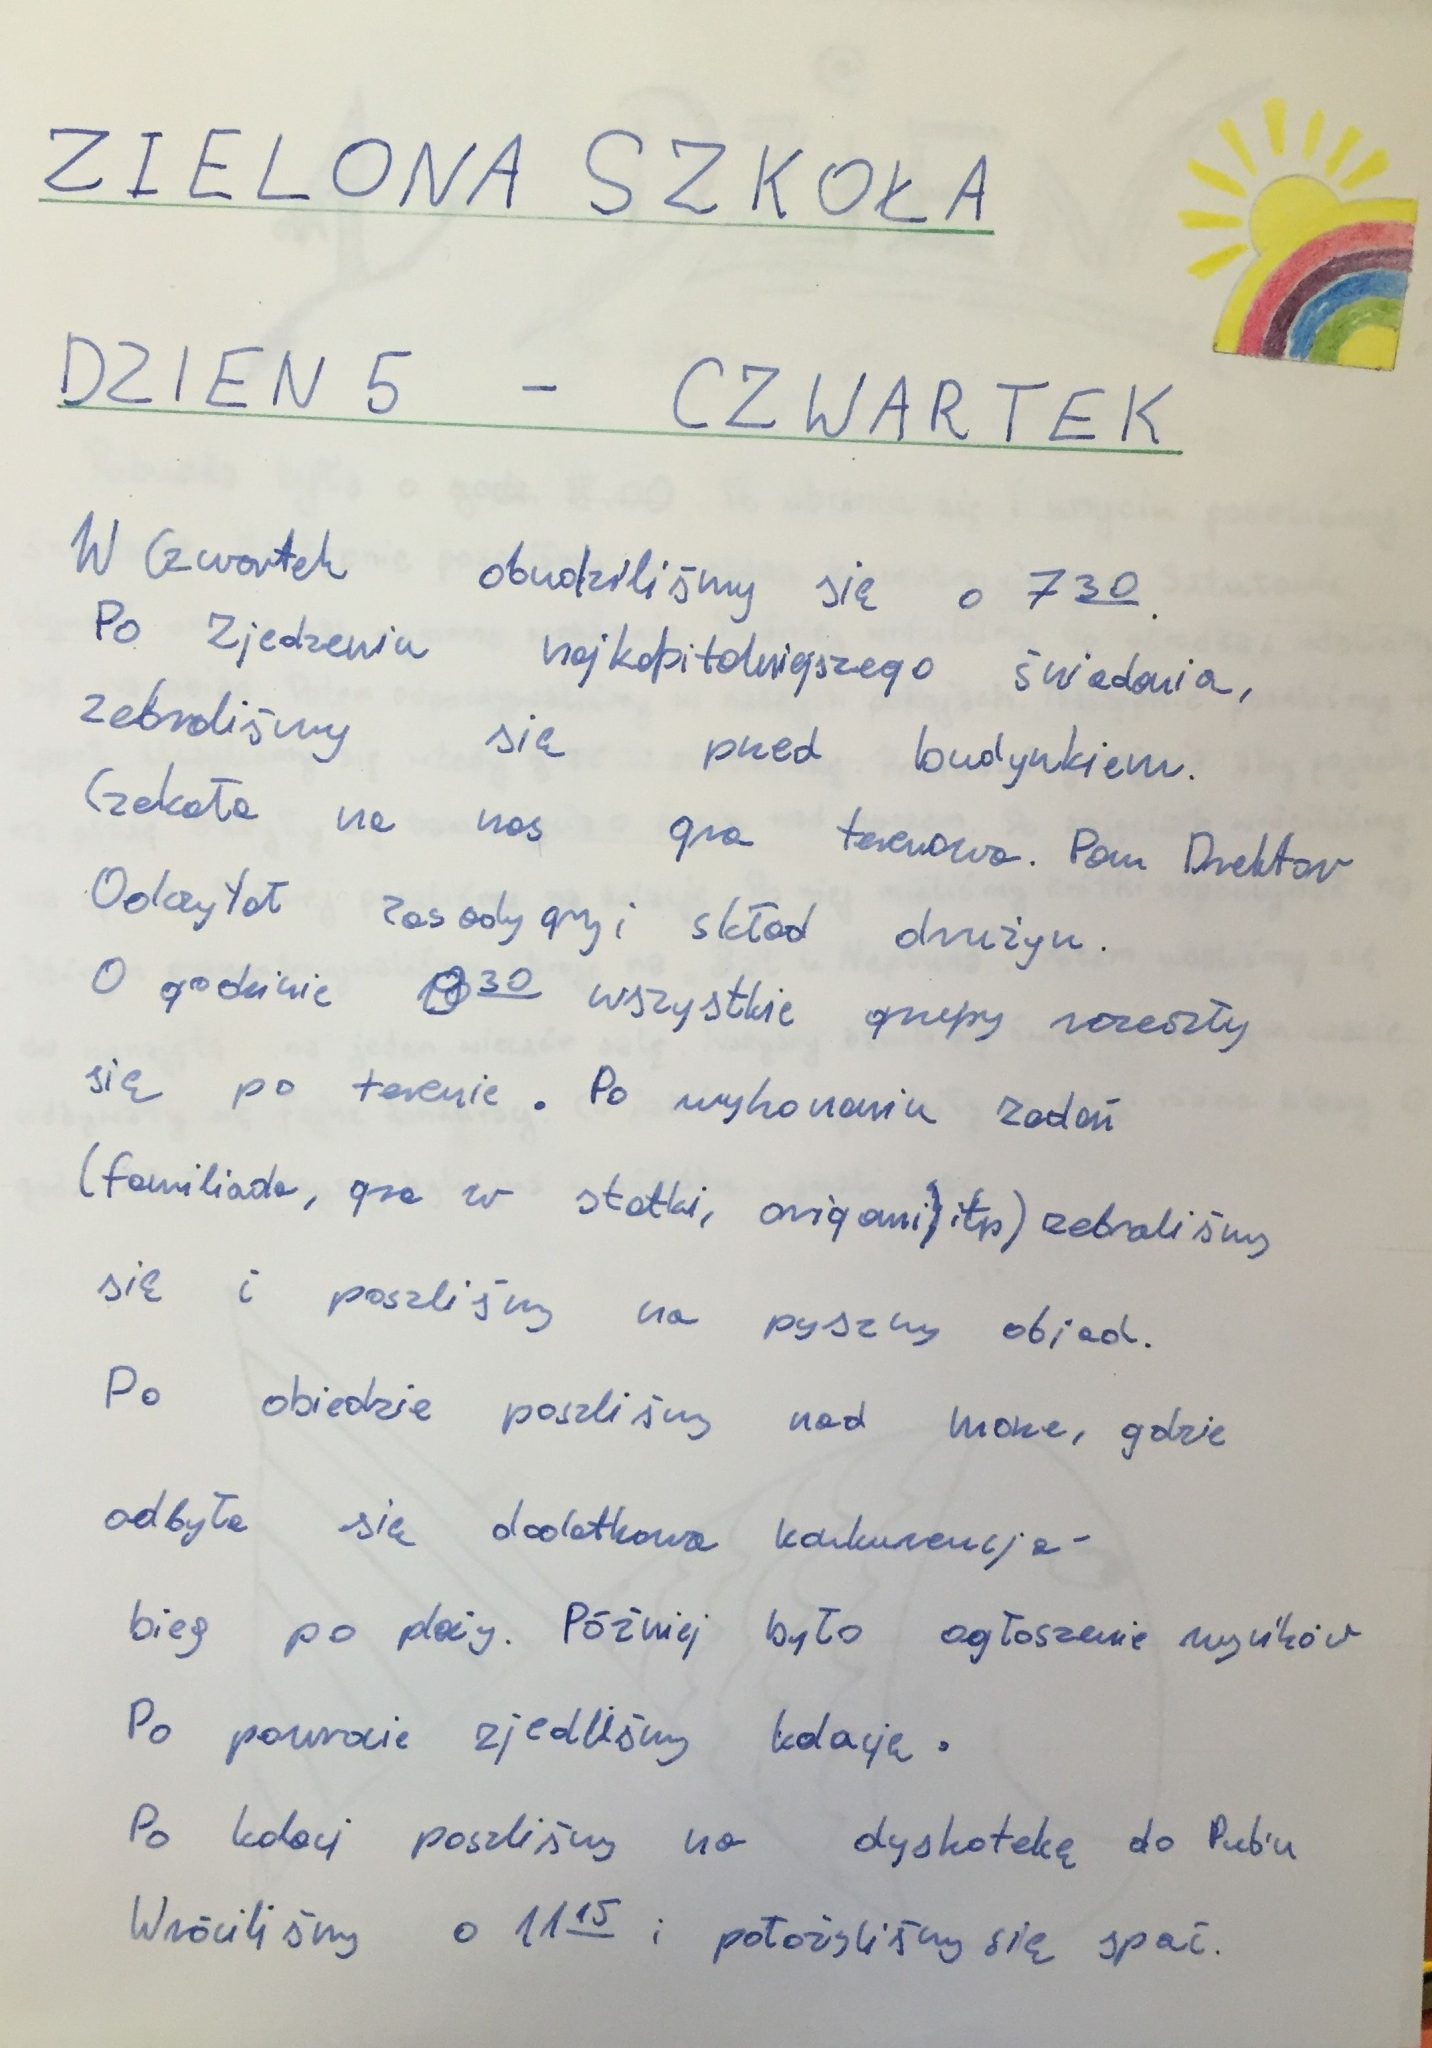 ZIELONA SZKOŁA
DZIEN 5 - CZWARTEK
W Czwartek obudziliśmy się o 7 30.
Po Zjedzeniu najkapitalniejszego świadania,
zebraliśmy się przed budynkiem.
Czekała na nas gra terenowa. Pan Drektor
Odczytał zasady gry i skład drużyn.
O godzinie 30 wszystkie grupy rozeszły
się po terenie. Po wykonaniu zadań
(familiada, gra w statki, origami itp) zebraliśmy
się i poszliśmy na pyszny obiad.
Po obiedzie poszliśmy nad morze, gdzie
odbyła się dodatkowa konkurencja-
bieg po plaży. Później było ogłoszenie wyników
Po powrocie zjedliśmy kolację.
Po kolacj poszliśmy na dyskotekę do Pub'u
Wróciliśmy o 11 15 i położyliśmy się spać.